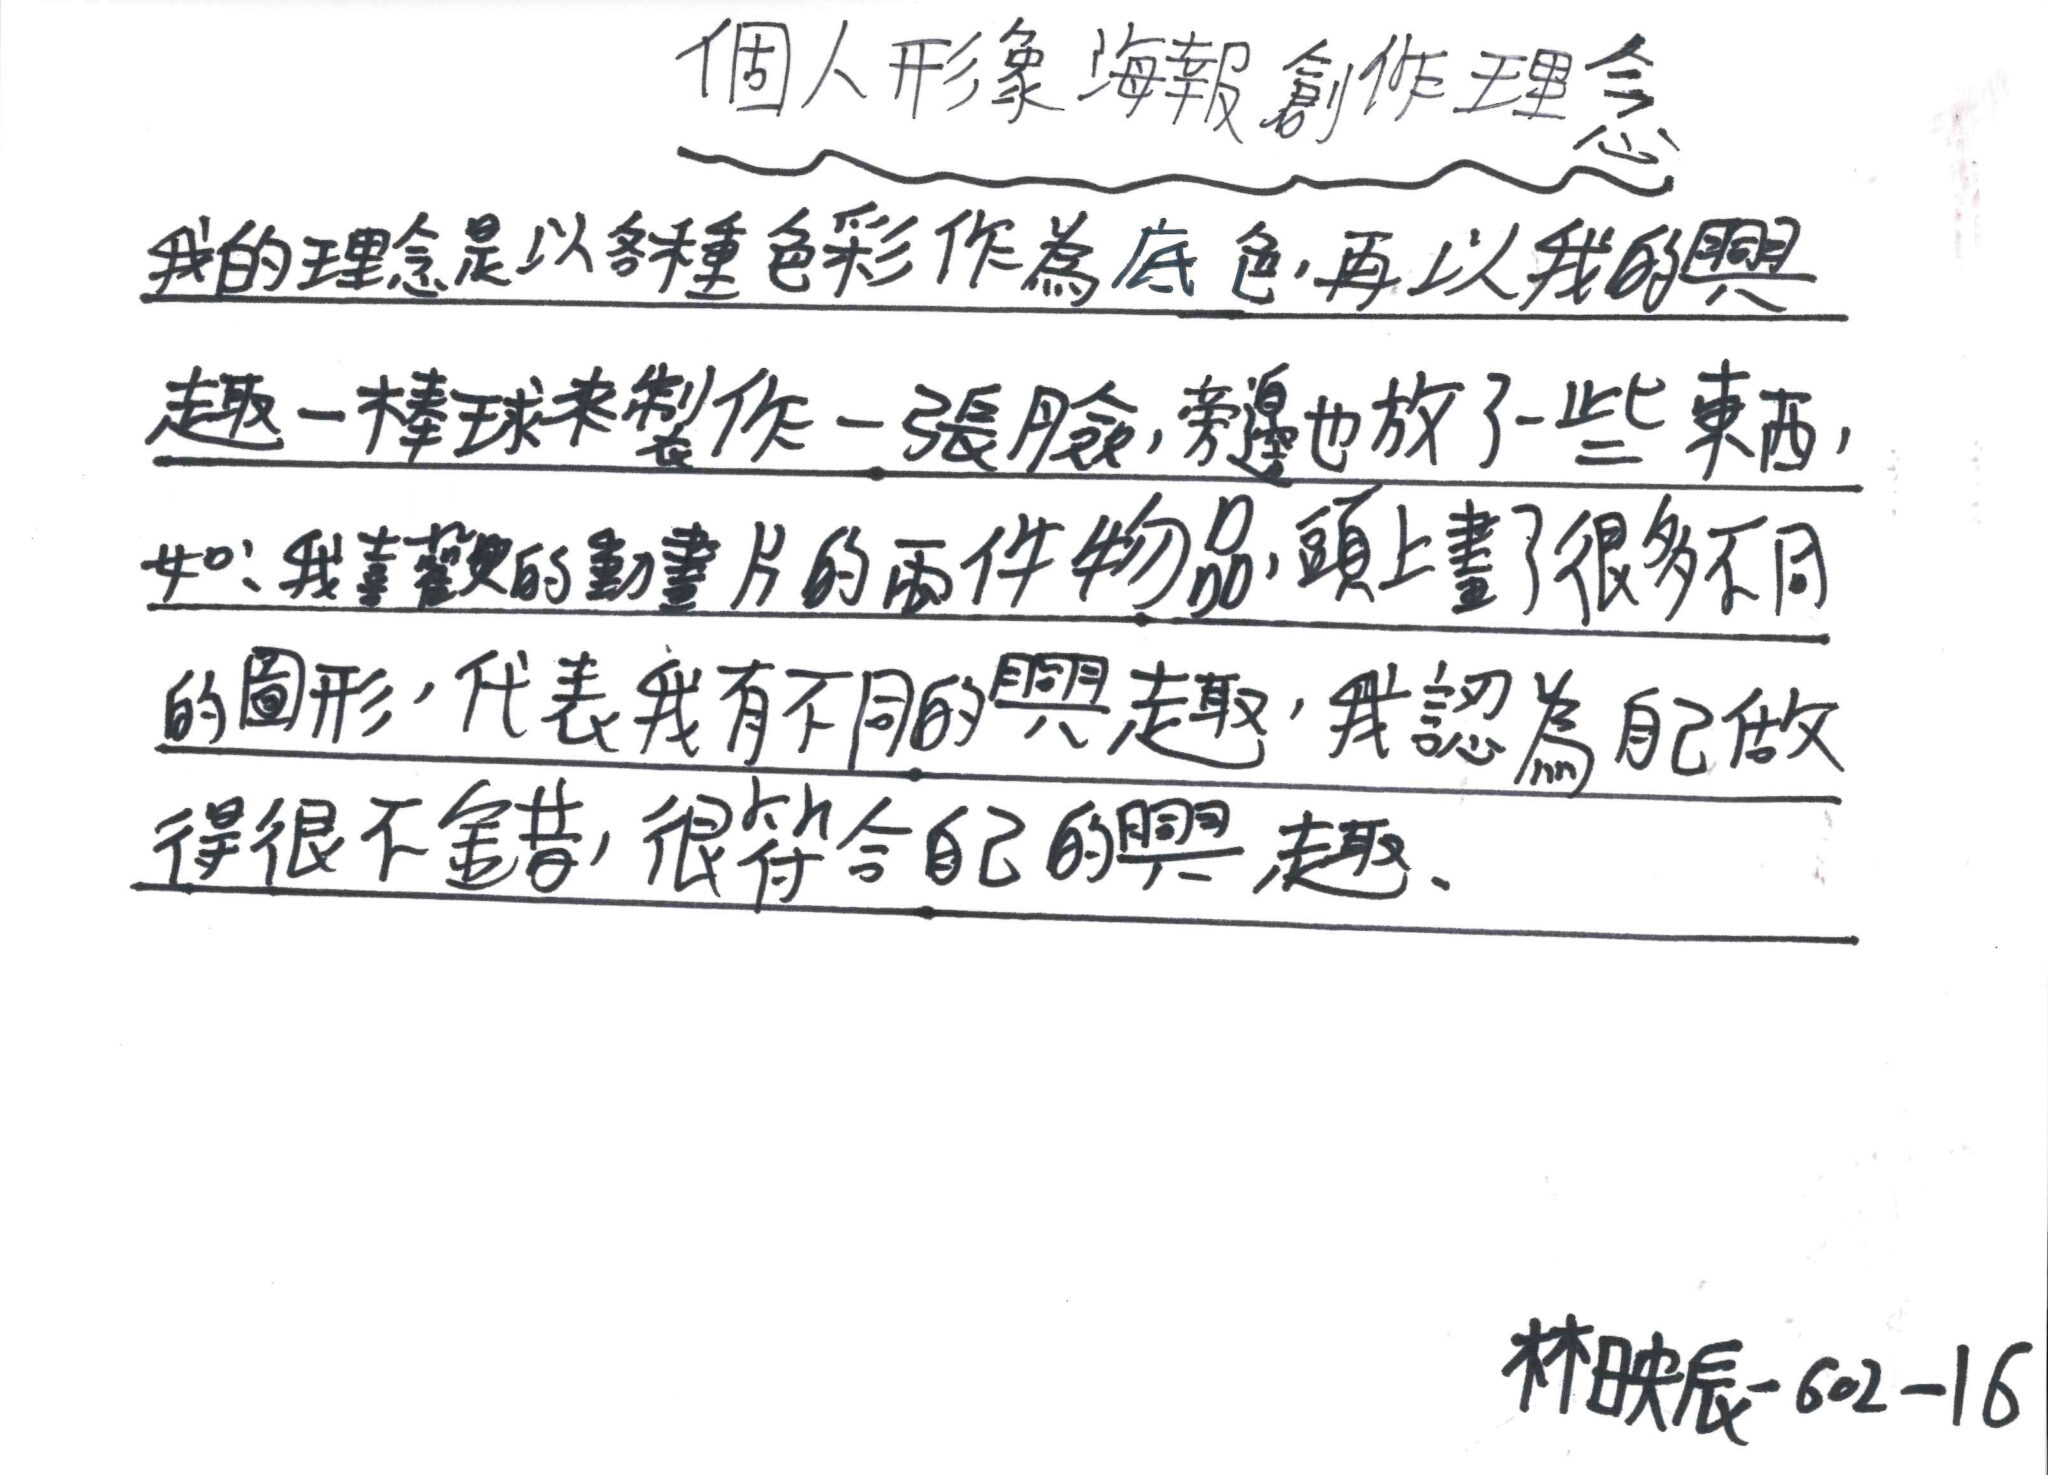 個人形象海報創作理念
我的理念是以各種色彩作為底色，再以我的興
趣—棒球來製作一張臉，旁邊也放了一些東西，
如：我喜歡的動畫片的兩件物品，頭上畫了很多不同
的圖形，代表我有不同的興趣，我認為自己做
得很不錯，很符合自己的興趣、
林映辰-602-16